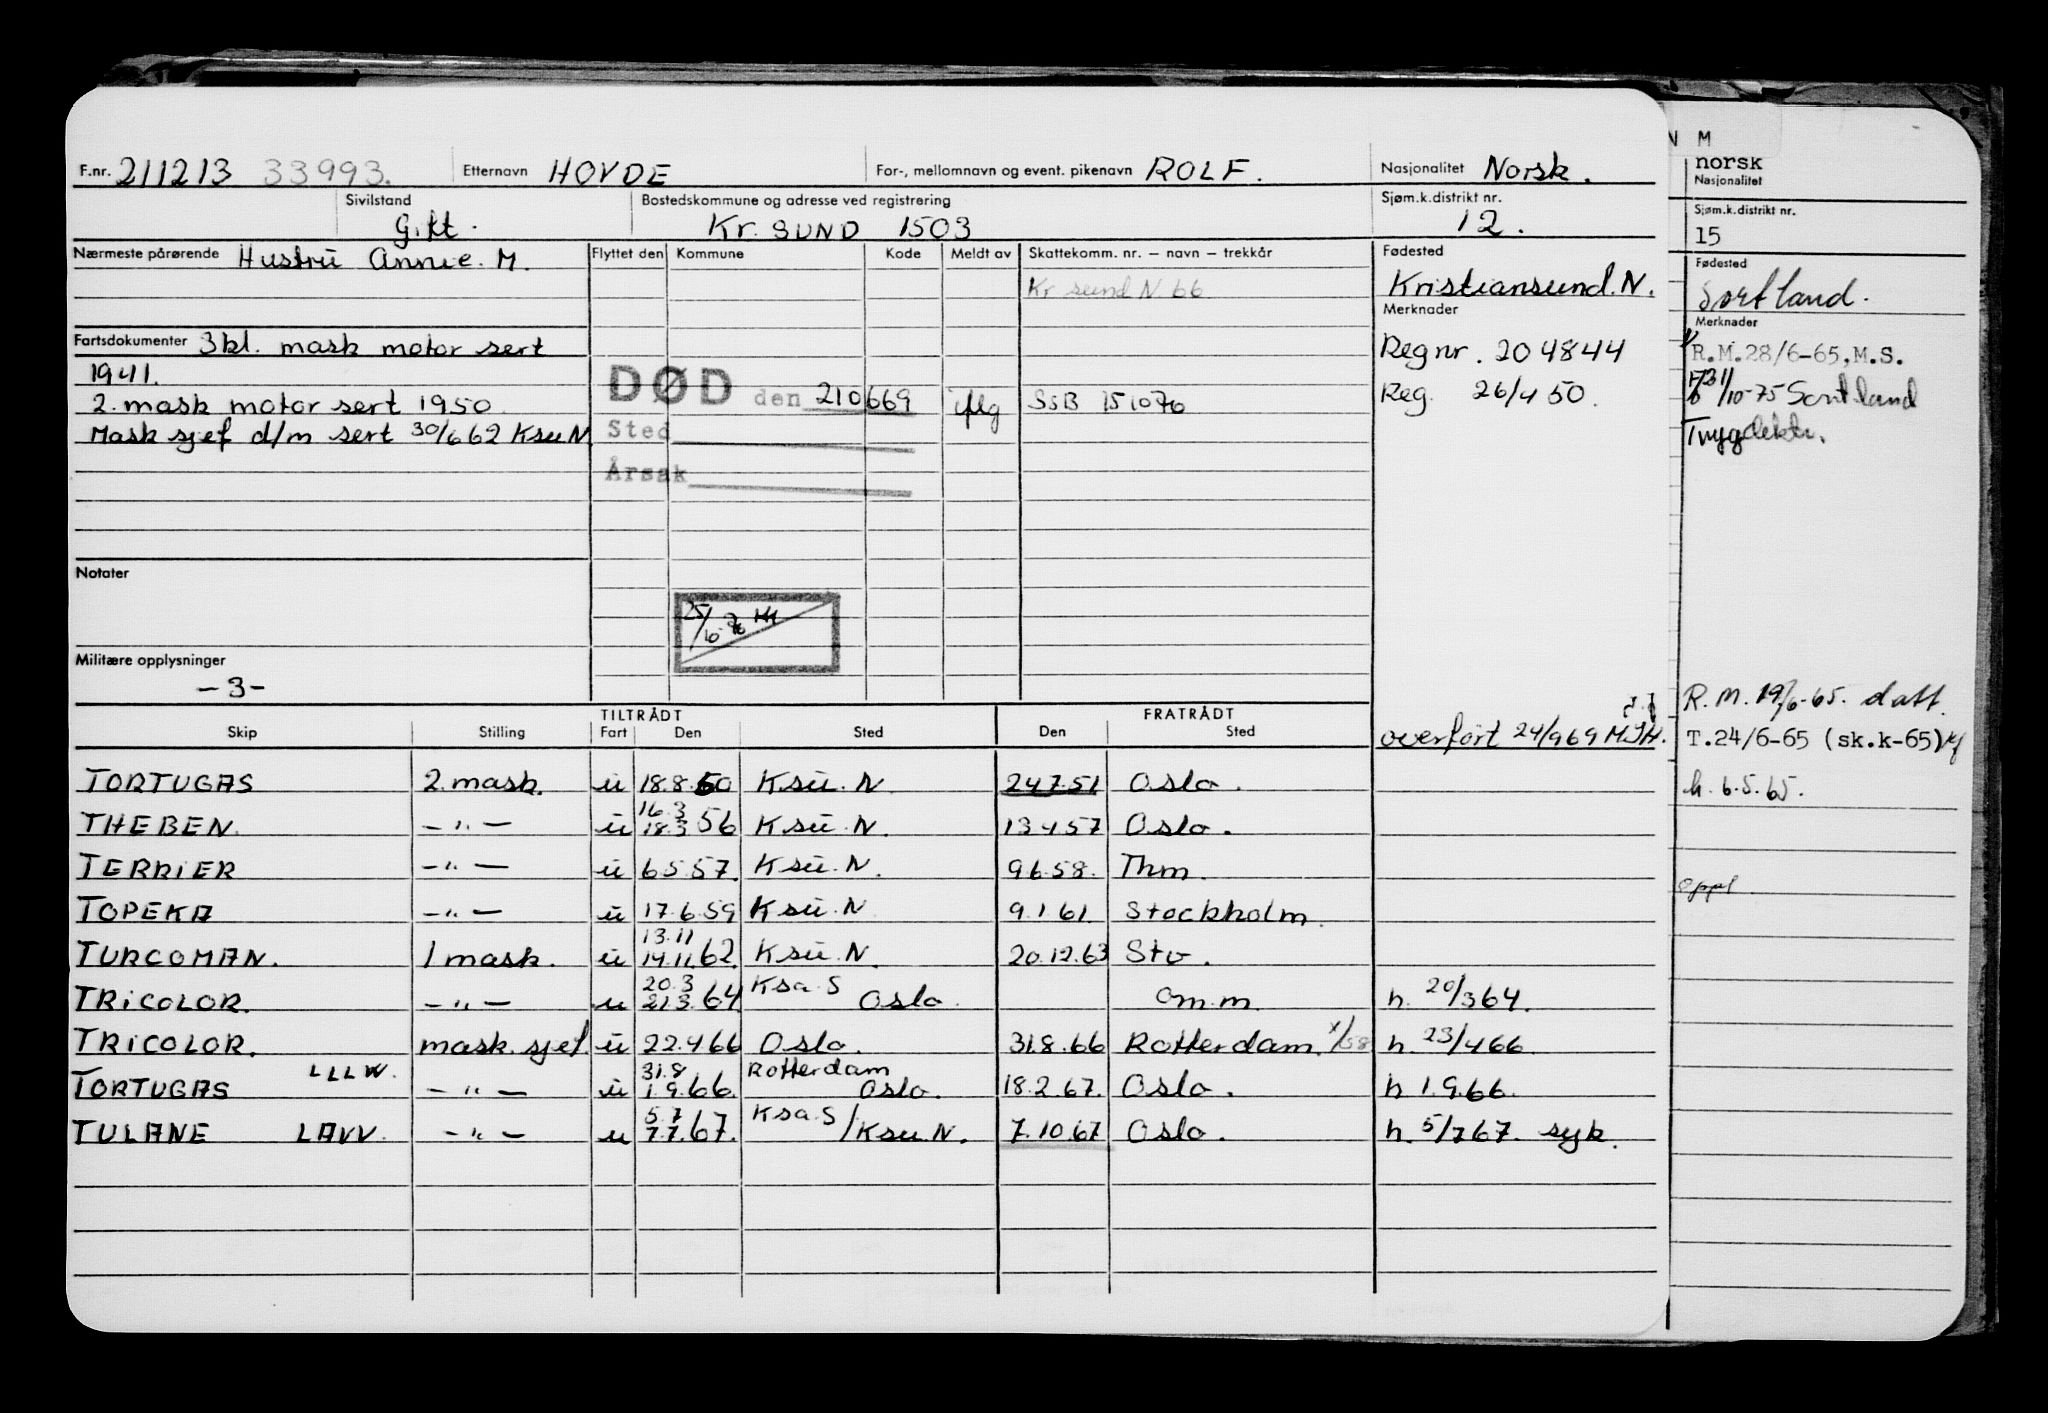 F.nr. 211213 33993. Etternavn HOVDE For-, mellomnavn og event. pikenavn ROLF. Nasjonalitet Norsk.
Sivilstand Gift. Bostedskommune og adresse ved registrering Kr. SUND 1503 Sjøm.k.distrikt nr. 12.
Nærmeste pårørende Hustru Annie. M. Flyttet den Kommune Kode Meldt av Skattekomm. nr. – navn – trekkår Fødested
Kr sund N 66 Kristiansund. N.
Merknader
Fartsdokumenter 3kl. mask motor sert Reg nr. 204844
1941.
2. mask motor sert 1950. DØD den 210669 iflg SSB 151070 Reg. 26/4 50.
Mask sjef d/m sert 30/6 62 Ksu N Sted
Årsak
Notater
25/6-70
Militære opplysninger
-3-
TILTRÅDT FRATRÅDT
Skip Stilling Fart Den Sted Den Sted overført 24/969 MJH.
TORTUGAS 2. mask. u 18.8.50 Ksu. N 247.51 Oslo.
THEBEN. -"- u 16.3 18.3 56 Ksu. N. 13457 Oslo.
TERRIER -"- u 6557. Ksu. N. 96.58. Thm.
TOPEKA -"- u 17.6.59 Ksu. N 9.1.61. Stockholm.
TURCOMAN. 1 mask. u 13.11 14.11.62. Ksu. N. 20.12.63 Stv.
TRICOLOR. -"- u 20.3 213.64 Ksa. S Oslo. om.m h. 20/364.
TRICOLOR. mask. sjef. u 22.466 Oslo. 318.66 Rotterdam. x/58 h. 23/466.
TORTUGAS LLLW. -"- u 31.8 1.9.66. Rotterdam Oslo. 18.2.67. Oslo. h 1.9.66.
TULANE LAVV. -"- u 5.7 7.7.67. Ksa. S/Ksu. N. 7.10.67 Oslo. h. 5/767. syk.
N M
norsk
Nasjonalitet
Sjøm.k.distrikt nr.
15
Fødested
Sortland.
Merknader
R.M.28/6-65, M.S.
/10-75 Sortland
Trygdektr.
R. M. 19/6-65. datt.
T.24/6-65 (sk.k-65)
h. 6.5.65.
oppl.